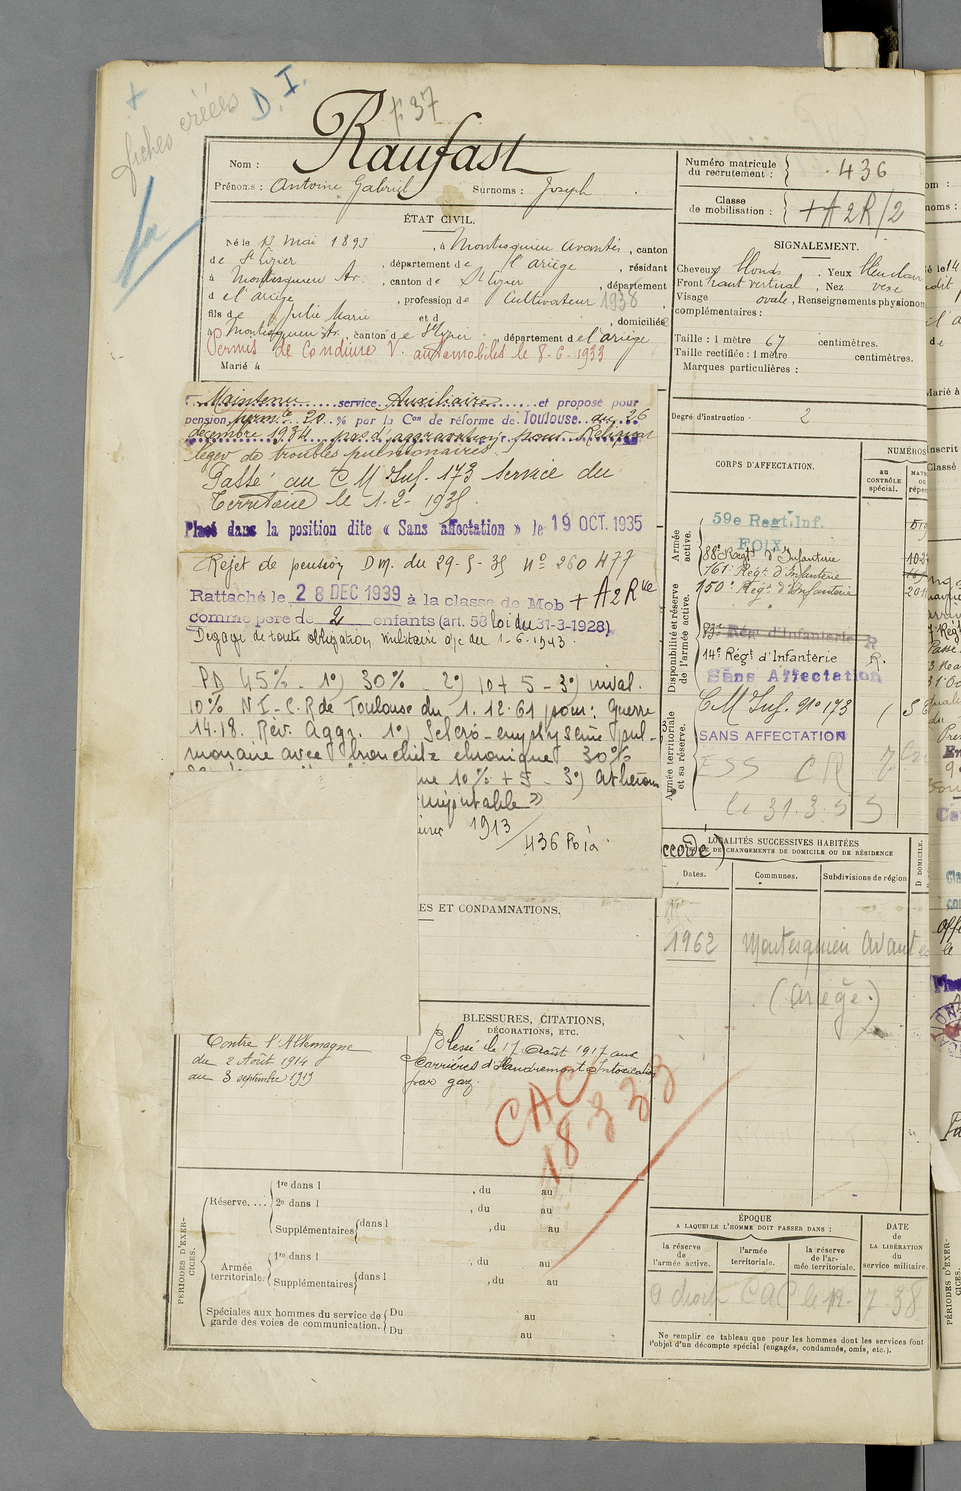 fiches créées
D. I.
f 37
Nom : Raufast
Prénoms : Antoine Gabriel Surnoms : Joseph
Numéro matricule du recrutement : 436
Classe de mobilisation : + A2R/2
ÉTAT CIVIL.
Né le 13 mai 1893, à Montesquieu avantès, canton
de St Lizier, département de l'ariège, résidant
à Montesquieu Av., canton de St Lizier, département
de l'ariège, profession de Cultivateur 1938
fils de et de Julie Marie, domiciliée
à Montesquieu Av., canton de St Lizier, département de l'ariège
Permis de Conduire V. automobiles le 8-6-1933
Marié à
SIGNALEMENT.
Cheveux blonds. Yeux bleu clair
Front haut vertical, Nez vexe
Visage ovale, Renseignements physionom
complémentaires :
Taille : 1 mètre 67 centimètres.
Taille rectifiée : 1 mètre centimètres.
Marques particulières :
Degré d'instruction : 2
Maintenu service Auxiliaire et proposé pour
pension perm.te 20 % par la Con de réforme de Toulouse du 26
décembre 1934 pas d'aggravation pour Reliquat
léger de troubles pulmonaires.
Passé au C M Inf. 173 Service du
Territoire le 1-2-1935.
Placé dans la position dite « Sans affectation » le 19 OCT. 1935
Rejet de pension DM. du 29-5-35 No 260477
Rattaché le 28 DEC 1939 à la classe de Mob + A2R
comme père de 2 enfants (art. 58 loi du 31-3-1928)
Dégagé de toute obligation militaire a/c du 1-6-1943.
PD 45% - 1°) 30% 2°) 10 + 5 - 3°) inval.
10% N I - C.R de Toulouse du 1.12.61 pour : guerre
14-18. Rév. Aggr. 1°) Scléro-emphysème pul-
monaire avec bronchite chronique 30%
me 10% + 5 - 3°) athérom
imputable »
1913 / 436 Foix
CORPS D'AFFECTATION.
NUMÉROS
au CONTRÔLE spécial.
Armée active.
59e Regt. Inf.
FOIX
88e Régt d'Infanterie
161e Régt d'Infanterie
250e Régt d'Infanterie
Disponibilité et réserve de l'armée active.
83e Régt d'Infanterie R
14e Régt d'Infanterie R.
Sans Affectation
Armée territoriale et sa réserve.
C M Inf. No 173
SANS AFFECTATION
ESS CR
le 31.3.55
LOCALITÉS SUCCESSIVES HABITÉES
DE CHANGEMENTS DE DOMICILE OU DE RÉSIDENCE
Dates. Communes. Subdivisions de région
1962 Montesquieu Avantès
(Ariège.)
ES ET CONDAMNATIONS.
BLESSURES, CITATIONS,
DÉCORATIONS, ETC.
Contre l'Allemagne
du 2 Août 1914
au 3 septembre 1919
Blessé le 17 Août 1917 aux
Carrières d'Haudremont Intoxication
par gaz.
CAC
18333
PÉRIODES D'EXERCICES.
Réserve....
1re dans l , du au
2e dans l , du au
Supplémentaires dans l , du au
Armée territoriale.
1re dans l , du au
Supplémentaires dans l , du au
Spéciales aux hommes du service de garde des voies de communication. Du au
Du au
ÉPOQUE
A LAQUELLE L'HOMME DOIT PASSER DANS :
la réserve de l'armée active.
l'armée territoriale.
la réserve de l'armée territoriale.
DATE de LA LIBÉRATION du service militaire.
a droit CAC le 12-7-38
Ne remplir ce tableau que pour les hommes dont les services font
l'objet d'un décompte spécial (engagés, condamnés, omis, etc.).